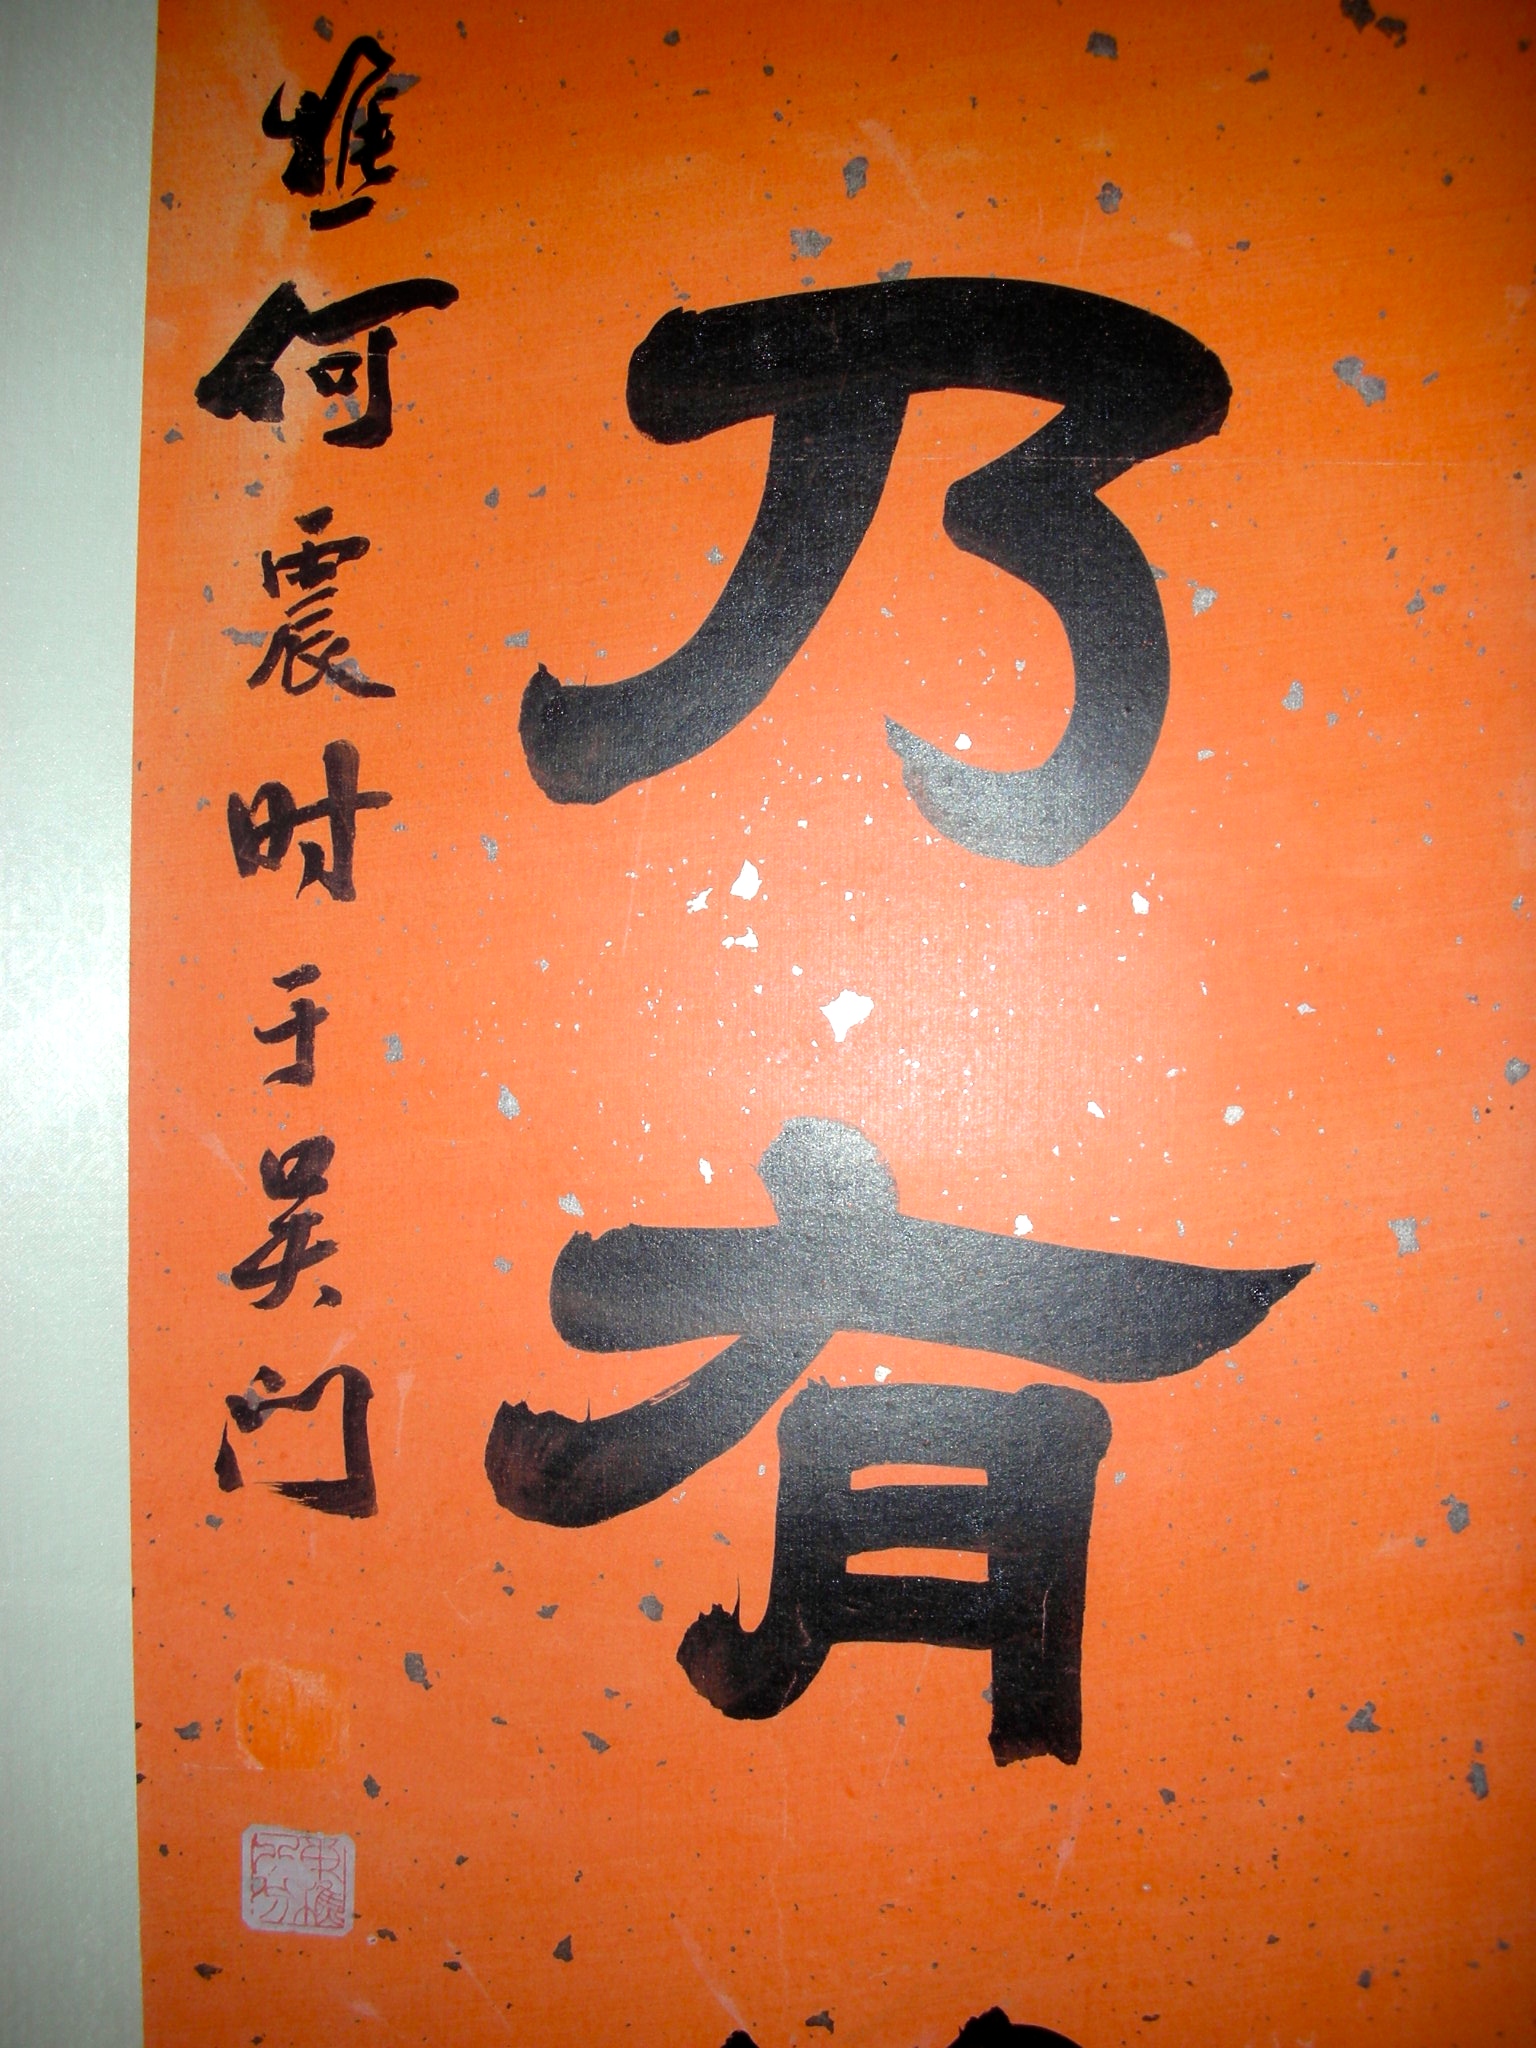 乃有
樵何震时于吴门